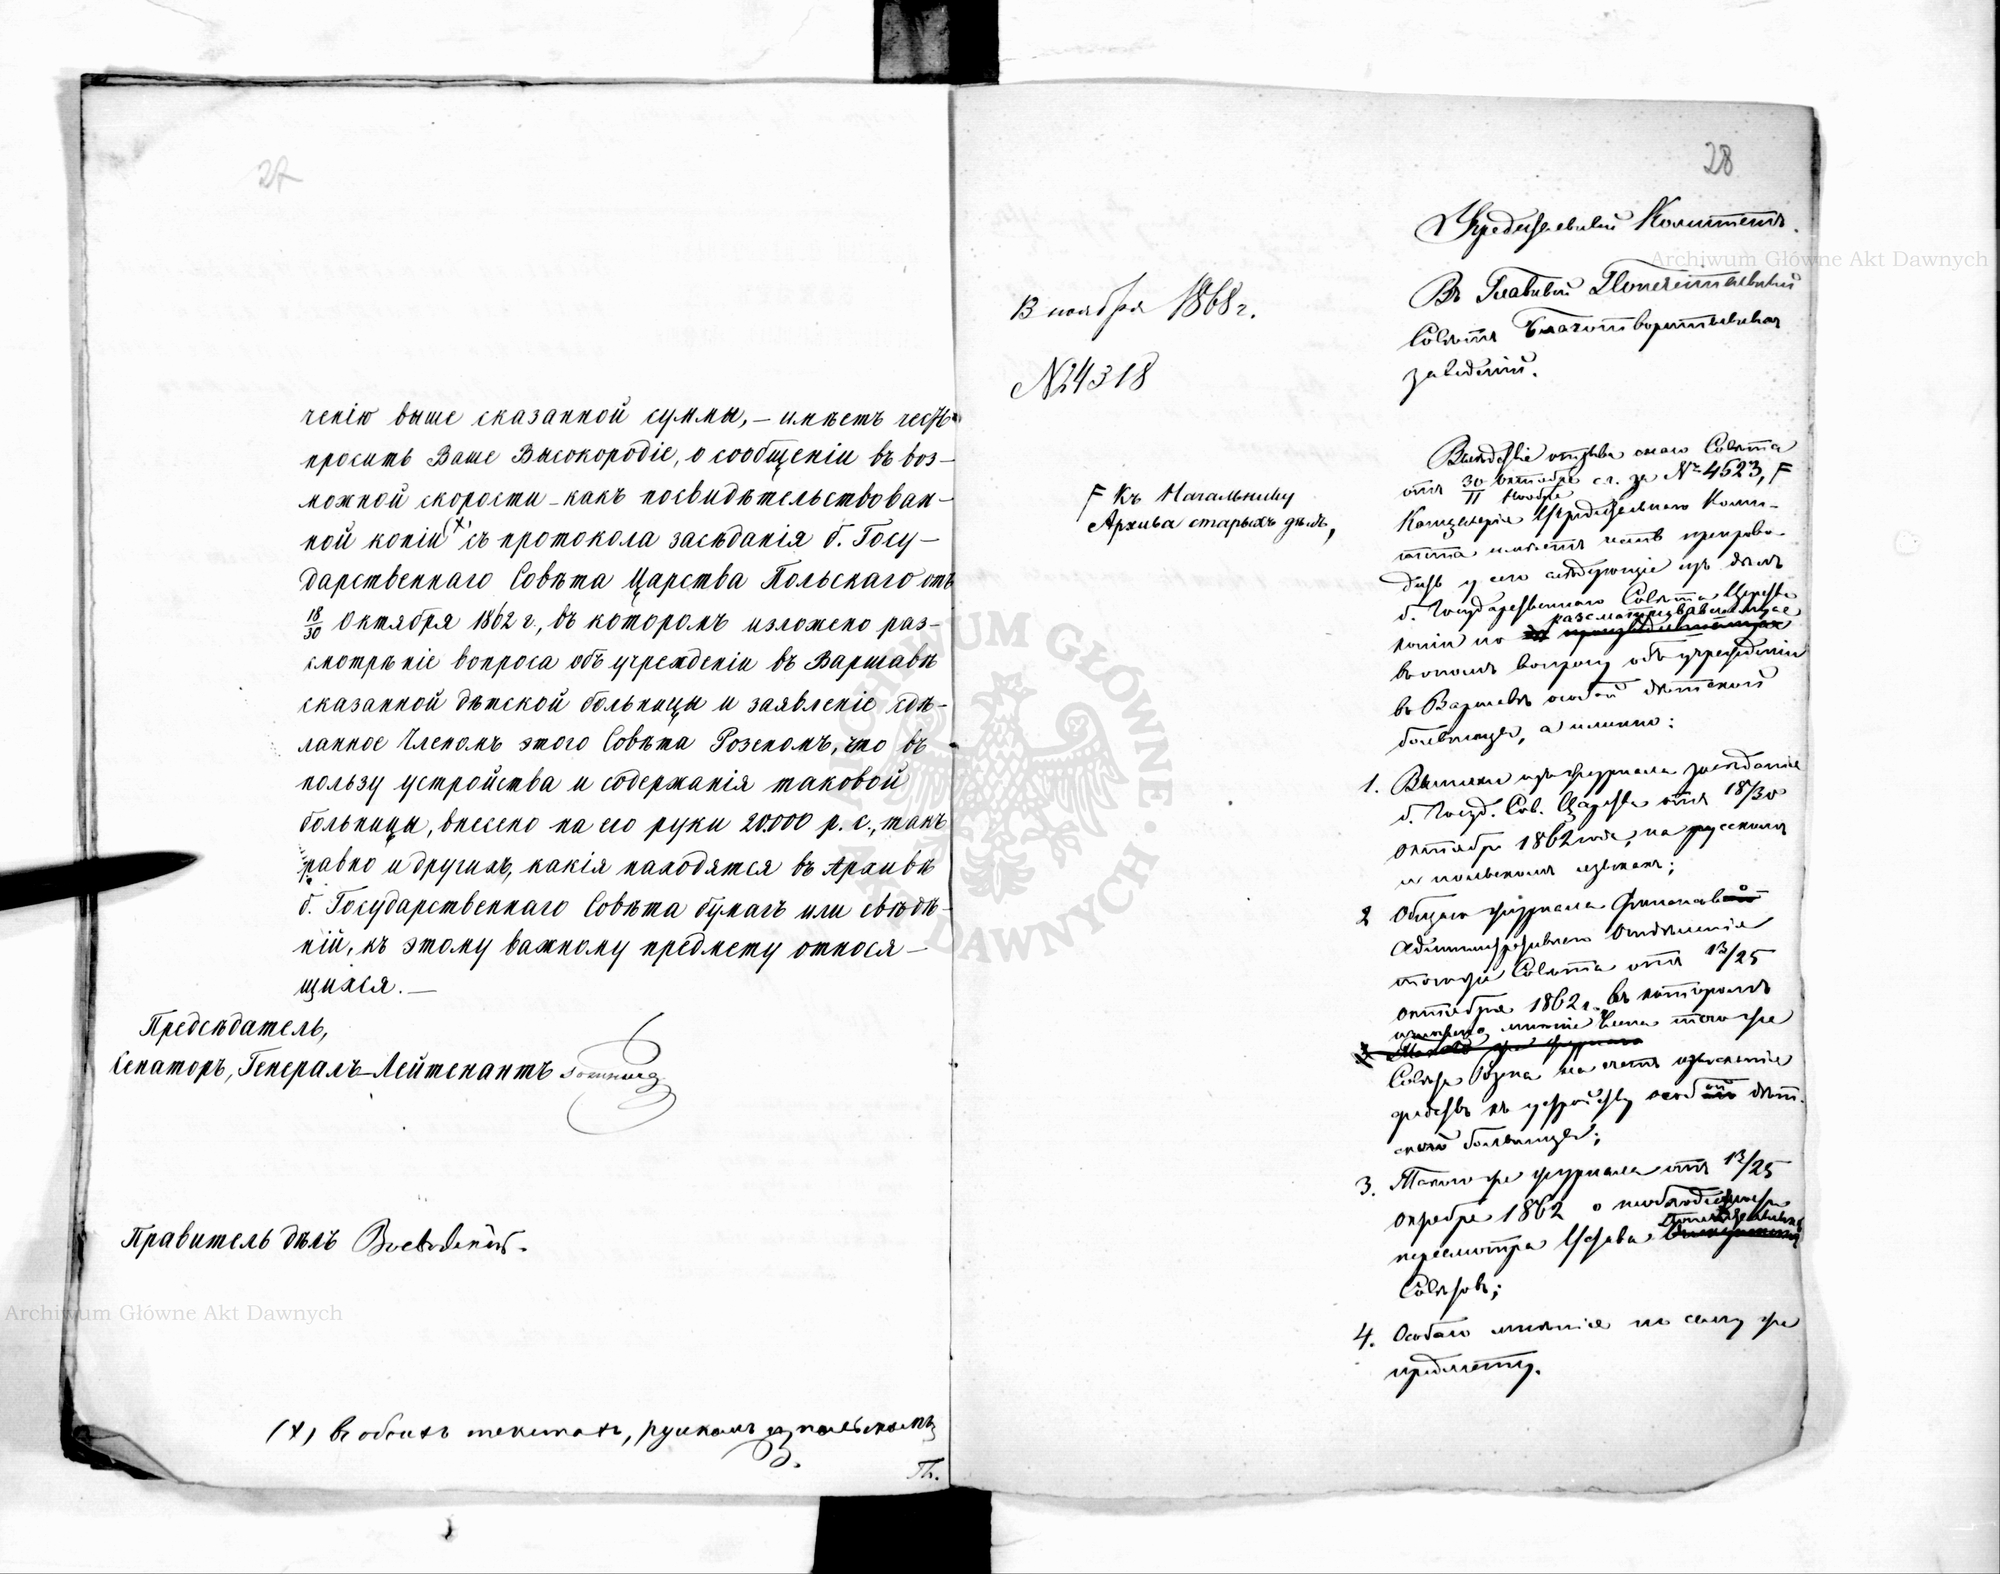 27
ченію выше сказанной суммы, — имѣетъ честь
просить Ваше Высокородіе, о сообщеніи въ воз-
можной скорости — какъ посвидѣтельствован-
ной копіи (+) съ протокола засѣданія б. Госу-
дарственнаго Совѣта Царства Польскаго отъ
18/30 Октября 1862 г., въ которомъ изложено раз-
смотрѣніе вопроса объ учрежденіи въ Варшавѣ
сказанной дѣтской больницы и заявленіе сдѣ-
ланное Членомъ этого Совѣта Розеномъ, что въ
пользу устройства и содержанія таковой
больницы, внесено на его руки 20.000 р. с., такъ
равно и другихъ, какія находятся въ Архивѣ
б. Государственнаго Совѣта бумагъ или свѣдѣ-
ній, къ этому важному предмету относя-
щихся. —
Предсѣдатель,
Сенаторъ, Генералъ-Лейтенантъ
Правитель дѣлъ
(+) въ обоихъ текстахъ, рускомъ и польскомъ
28
Учредительный Комитетъ.
Въ Главный Попечительный
Совѣтъ Благотворительныхъ
заведеній.
13 ноября 1868 г.
№ 24318
F Къ Начальнику
Архива старыхъ дѣлъ,
Вслѣдствіе отзыва онаго Совѣта
отъ 30 октября / 11 ноября с.г. за № 4623, F
Канцелярія Учредительнаго Коми-
тета имѣетъ честь препрово-
дить у сего слѣдующіе изъ дѣлъ
б. Государственнаго Совѣта Царства
копіи по разсматривавшемуся
въ ономъ вопросу объ учрежденіи
въ Варшавѣ особой дѣтской
больницы, а именно:
1. Выписки изъ журнала засѣданія
б. Госуд. Сов. Царства отъ 18/30
октября 1862 года, на русскомъ
и польскомъ языкахъ;
2 Общаго журнала Финансово
Административнаго Отдѣленія
того же Совѣта отъ 13/25
октября 1862 г. въ которомъ
изложено мнѣніе Члена того же
Совѣта на счетъ изысканія
средствъ къ устройству особой дѣт-
ской больницы;
3. Такого же журнала отъ 13/25
октября 1862 о необходимости
пересмотра Устава Попечительныхъ
Совѣтовъ;
4. Особаго мнѣнія по сему же
предмету.
Archiwum Główne Akt Dawnych
Archiwum Główne Akt Dawnych
ARCHIWUM GŁÓWNE AKT DAWNYCH